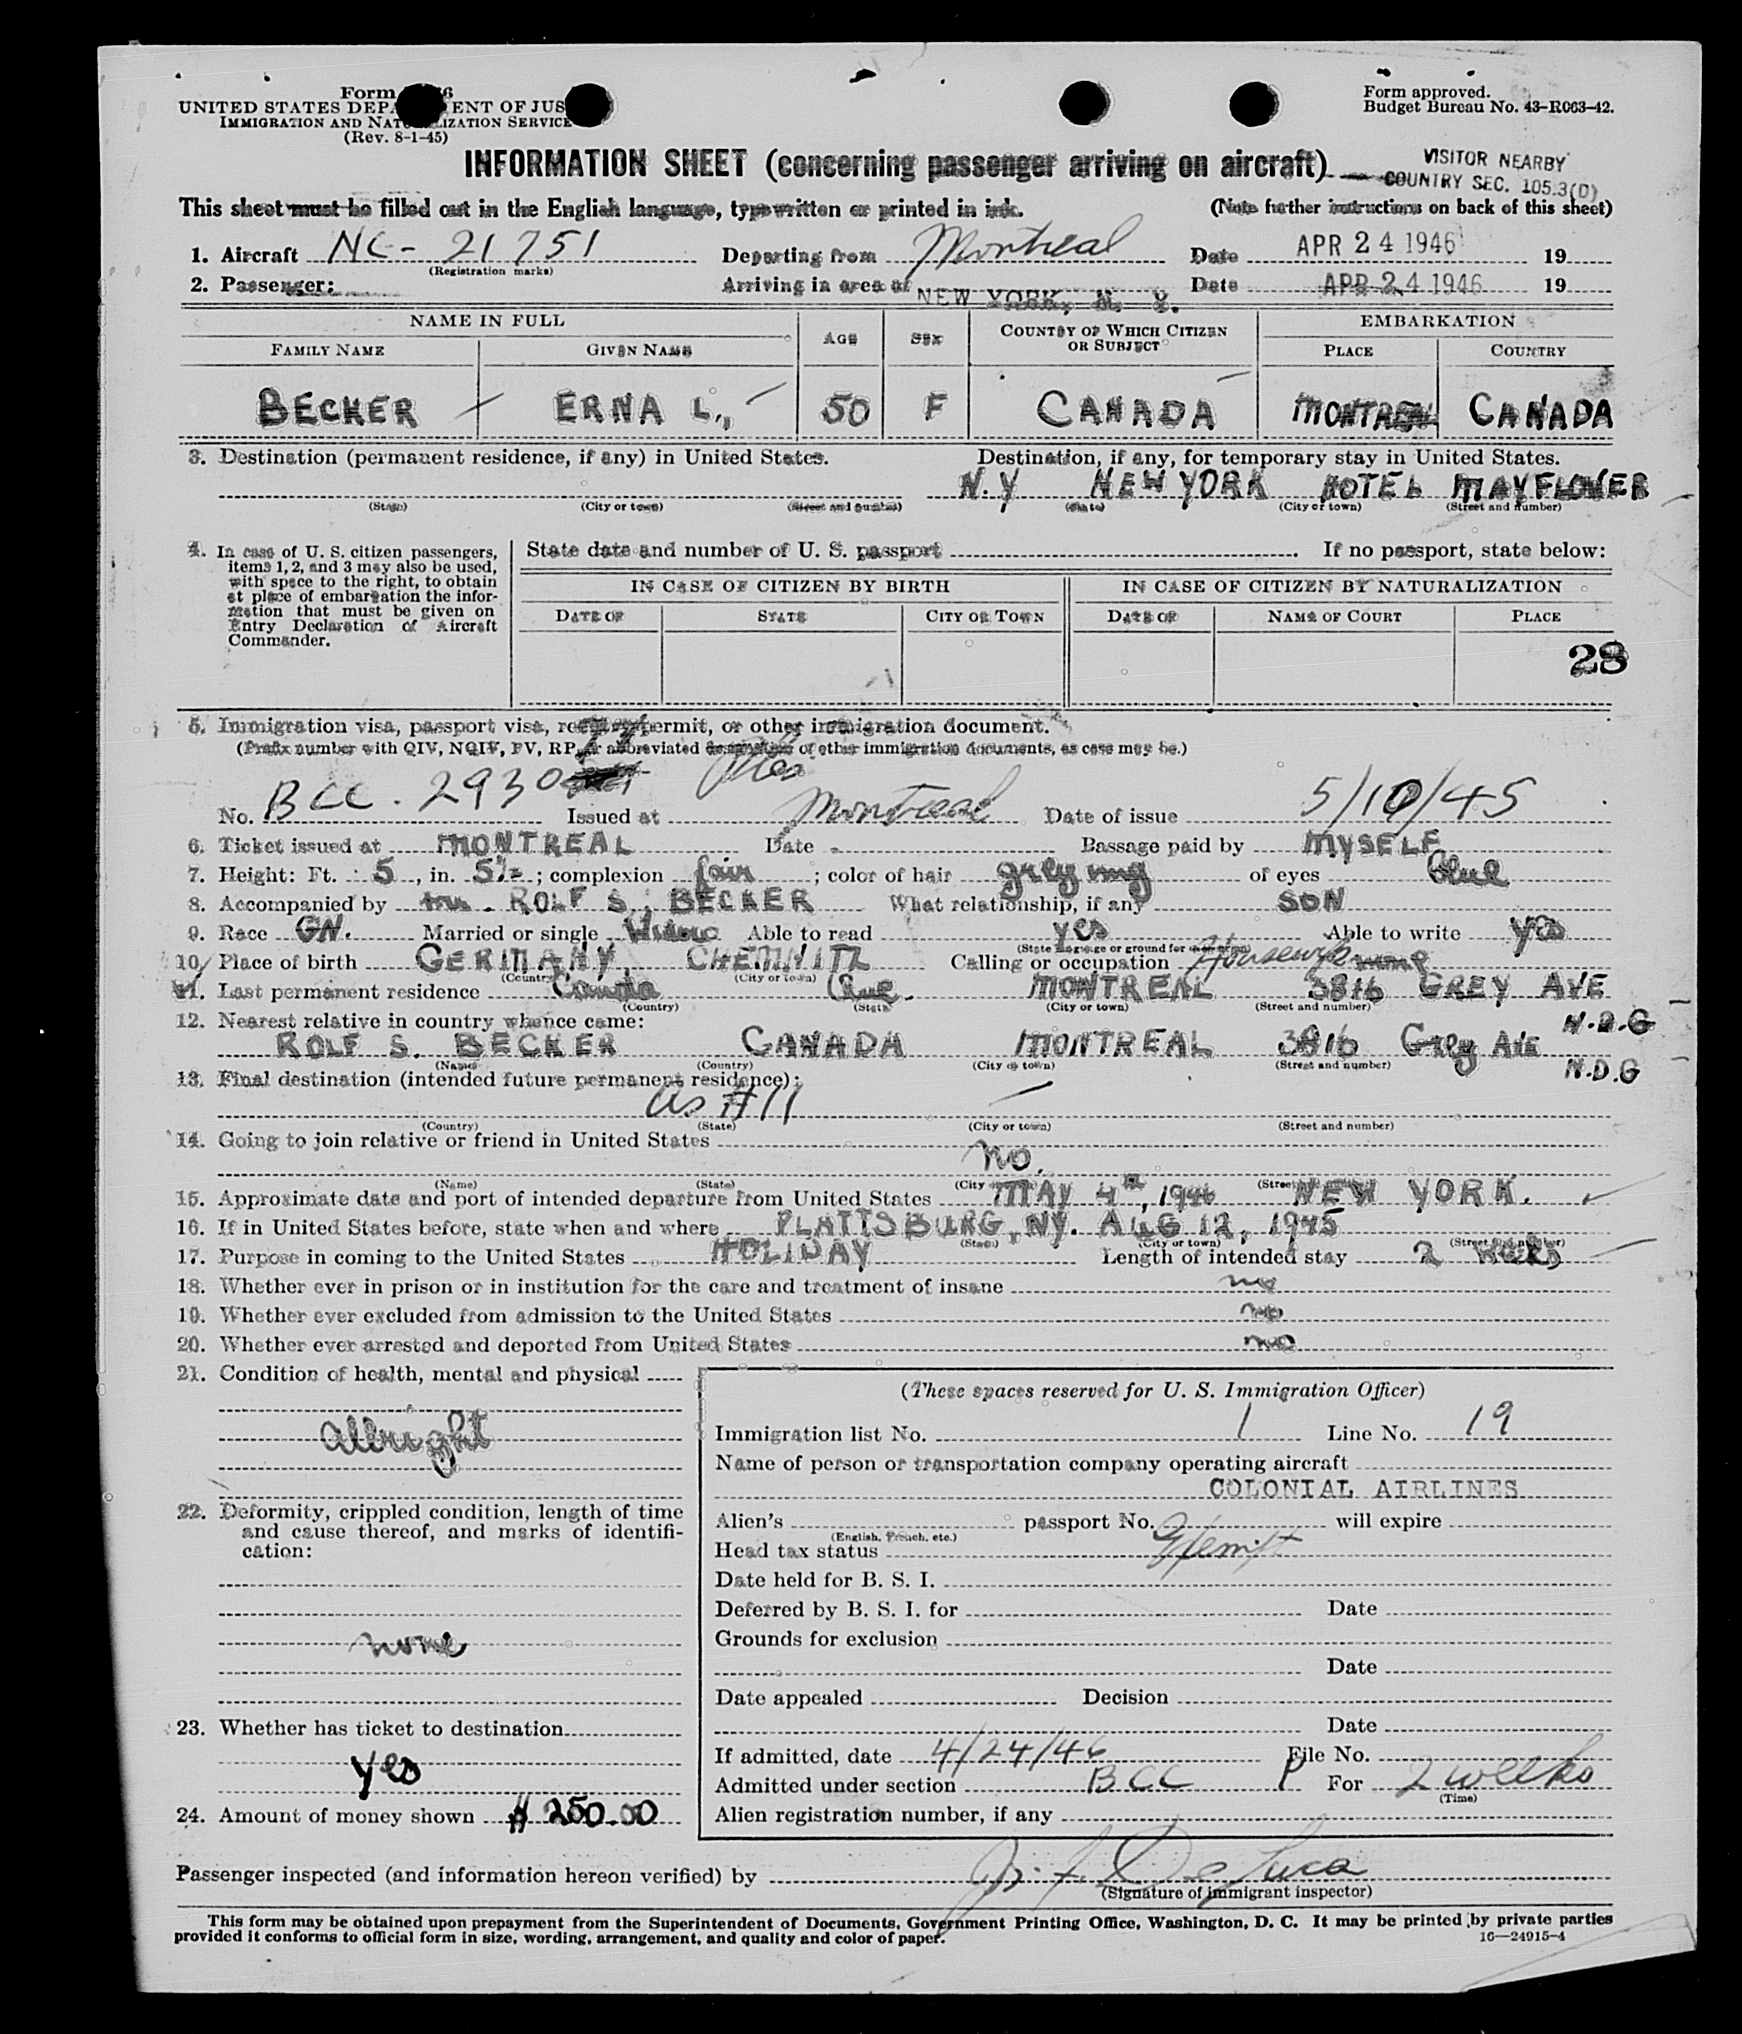 Form
UNITED STATES DEPARTMENT OF JUSTICE
IMMIGRATION AND NATURALIZATION SERVICE
(Rev. 8-1-45)
Form approved.
Budget Bureau No. 43-R063-42.
INFORMATION SHEET (concerning passenger arriving on aircraft)
VISITOR NEARBY
COUNTRY SEC. 105.3(D)
This sheet must be filled out in the English language, typewritten or printed in ink.
(Note further instructions on back of this sheet)
1. Aircraft NC- 21751 Departing from Montreal Date APR 24 1946 19
(Registration marks)
2. Passenger: Arriving in area of NEW YORK, N. Y. Date APR 24 1946 19
NAME IN FULL AGE SEX COUNTRY OF WHICH CITIZEN OR SUBJECT EMBARKATION
FAMILY NAME GIVEN NAME PLACE COUNTRY
BECKER ERNA L., 50 F CANADA MONTREAL CANADA
3. Destination (permanent residence, if any) in United States. Destination, if any, for temporary stay in United States.
N.Y NEW YORK HOTEL MAYFLOWER
(State) (City or town) (Street and number) (State) (City or town) (Street and number)
4. In case of U. S. citizen passengers,
items 1, 2, and 3 may also be used,
with space to the right, to obtain
at place of embarkation the infor-
mation that must be given on
Entry Declaration of Aircraft
Commander.
State date and number of U. S. passport If no passport, state below:
IN CASE OF CITIZEN BY BIRTH IN CASE OF CITIZEN BY NATURALIZATION
DATE OF STATE CITY OR TOWN DATE OF NAME OF COURT PLACE
28
5. Immigration visa, passport visa, reentry permit, or other immigration document.
(Prefix number with QIV, NQIV, PV, RP, or abbreviated designation of other immigration documents, as case may be.)
No. BCC. 2930 Issued at Montreal Date of issue 5/10/45
6. Ticket issued at MONTREAL Date Passage paid by MYSELF
7. Height: Ft. 5, in. 5½; complexion fair; color of hair grey of eyes blue
8. Accompanied by ROLF S. BECKER What relationship, if any SON
9. Race GN. Married or single Widow Able to read yes Able to write yes
(State language or ground for exemption)
10. Place of birth GERMANY, CHEMNITZ Calling or occupation Housewife
(Country) (City or town)
11. Last permanent residence Canada Que. MONTREAL 3816 GREY AVE
(Country) (State) (City or town) (Street and number)
N.D.G
12. Nearest relative in country whence came:
ROLF S. BECKER CANADA MONTREAL 3816 Grey AVE
(Name) (Country) (City or town) (Street and number)
N.D.G
13. Final destination (intended future permanent residence):
as #11
(Country) (State) (City or town) (Street and number)
14. Going to join relative or friend in United States
no.
(Name) (State) (City or town) (Street and number)
15. Approximate date and port of intended departure from United States MAY 4th, 1946 NEW YORK.
16. If in United States before, state when and where PLATTSBURG, NY. AUG 12, 1945
(State) (City or town) (Street and number)
17. Purpose in coming to the United States HOLIDAY Length of intended stay 2 weeks
18. Whether ever in prison or in institution for the care and treatment of insane no
19. Whether ever excluded from admission to the United States no
20. Whether ever arrested and deported from United States no
21. Condition of health, mental and physical
allright
22. Deformity, crippled condition, length of time
and cause thereof, and marks of identifi-
cation:
none
23. Whether has ticket to destination
yes
24. Amount of money shown $ 250.00
(These spaces reserved for U. S. Immigration Officer)
Immigration list No. 1 Line No. 19
Name of person or transportation company operating aircraft
COLONIAL AIRLINES
Alien's passport No. will expire
(English, French, etc.)
Head tax status Exempt
Date held for B. S. I.
Deferred by B. S. I. for Date
Grounds for exclusion
Date
Date appealed Decision
Date
If admitted, date 4/24/46 File No.
Admitted under section BCC P For 2 weeks
(Time)
Alien registration number, if any
Passenger inspected (and information hereon verified) by De Luca
(Signature of immigrant inspector)
This form may be obtained upon prepayment from the Superintendent of Documents, Government Printing Office, Washington, D. C. It may be printed by private parties
provided it conforms to official form in size, wording, arrangement, and quality and color of paper.
16—24915-4